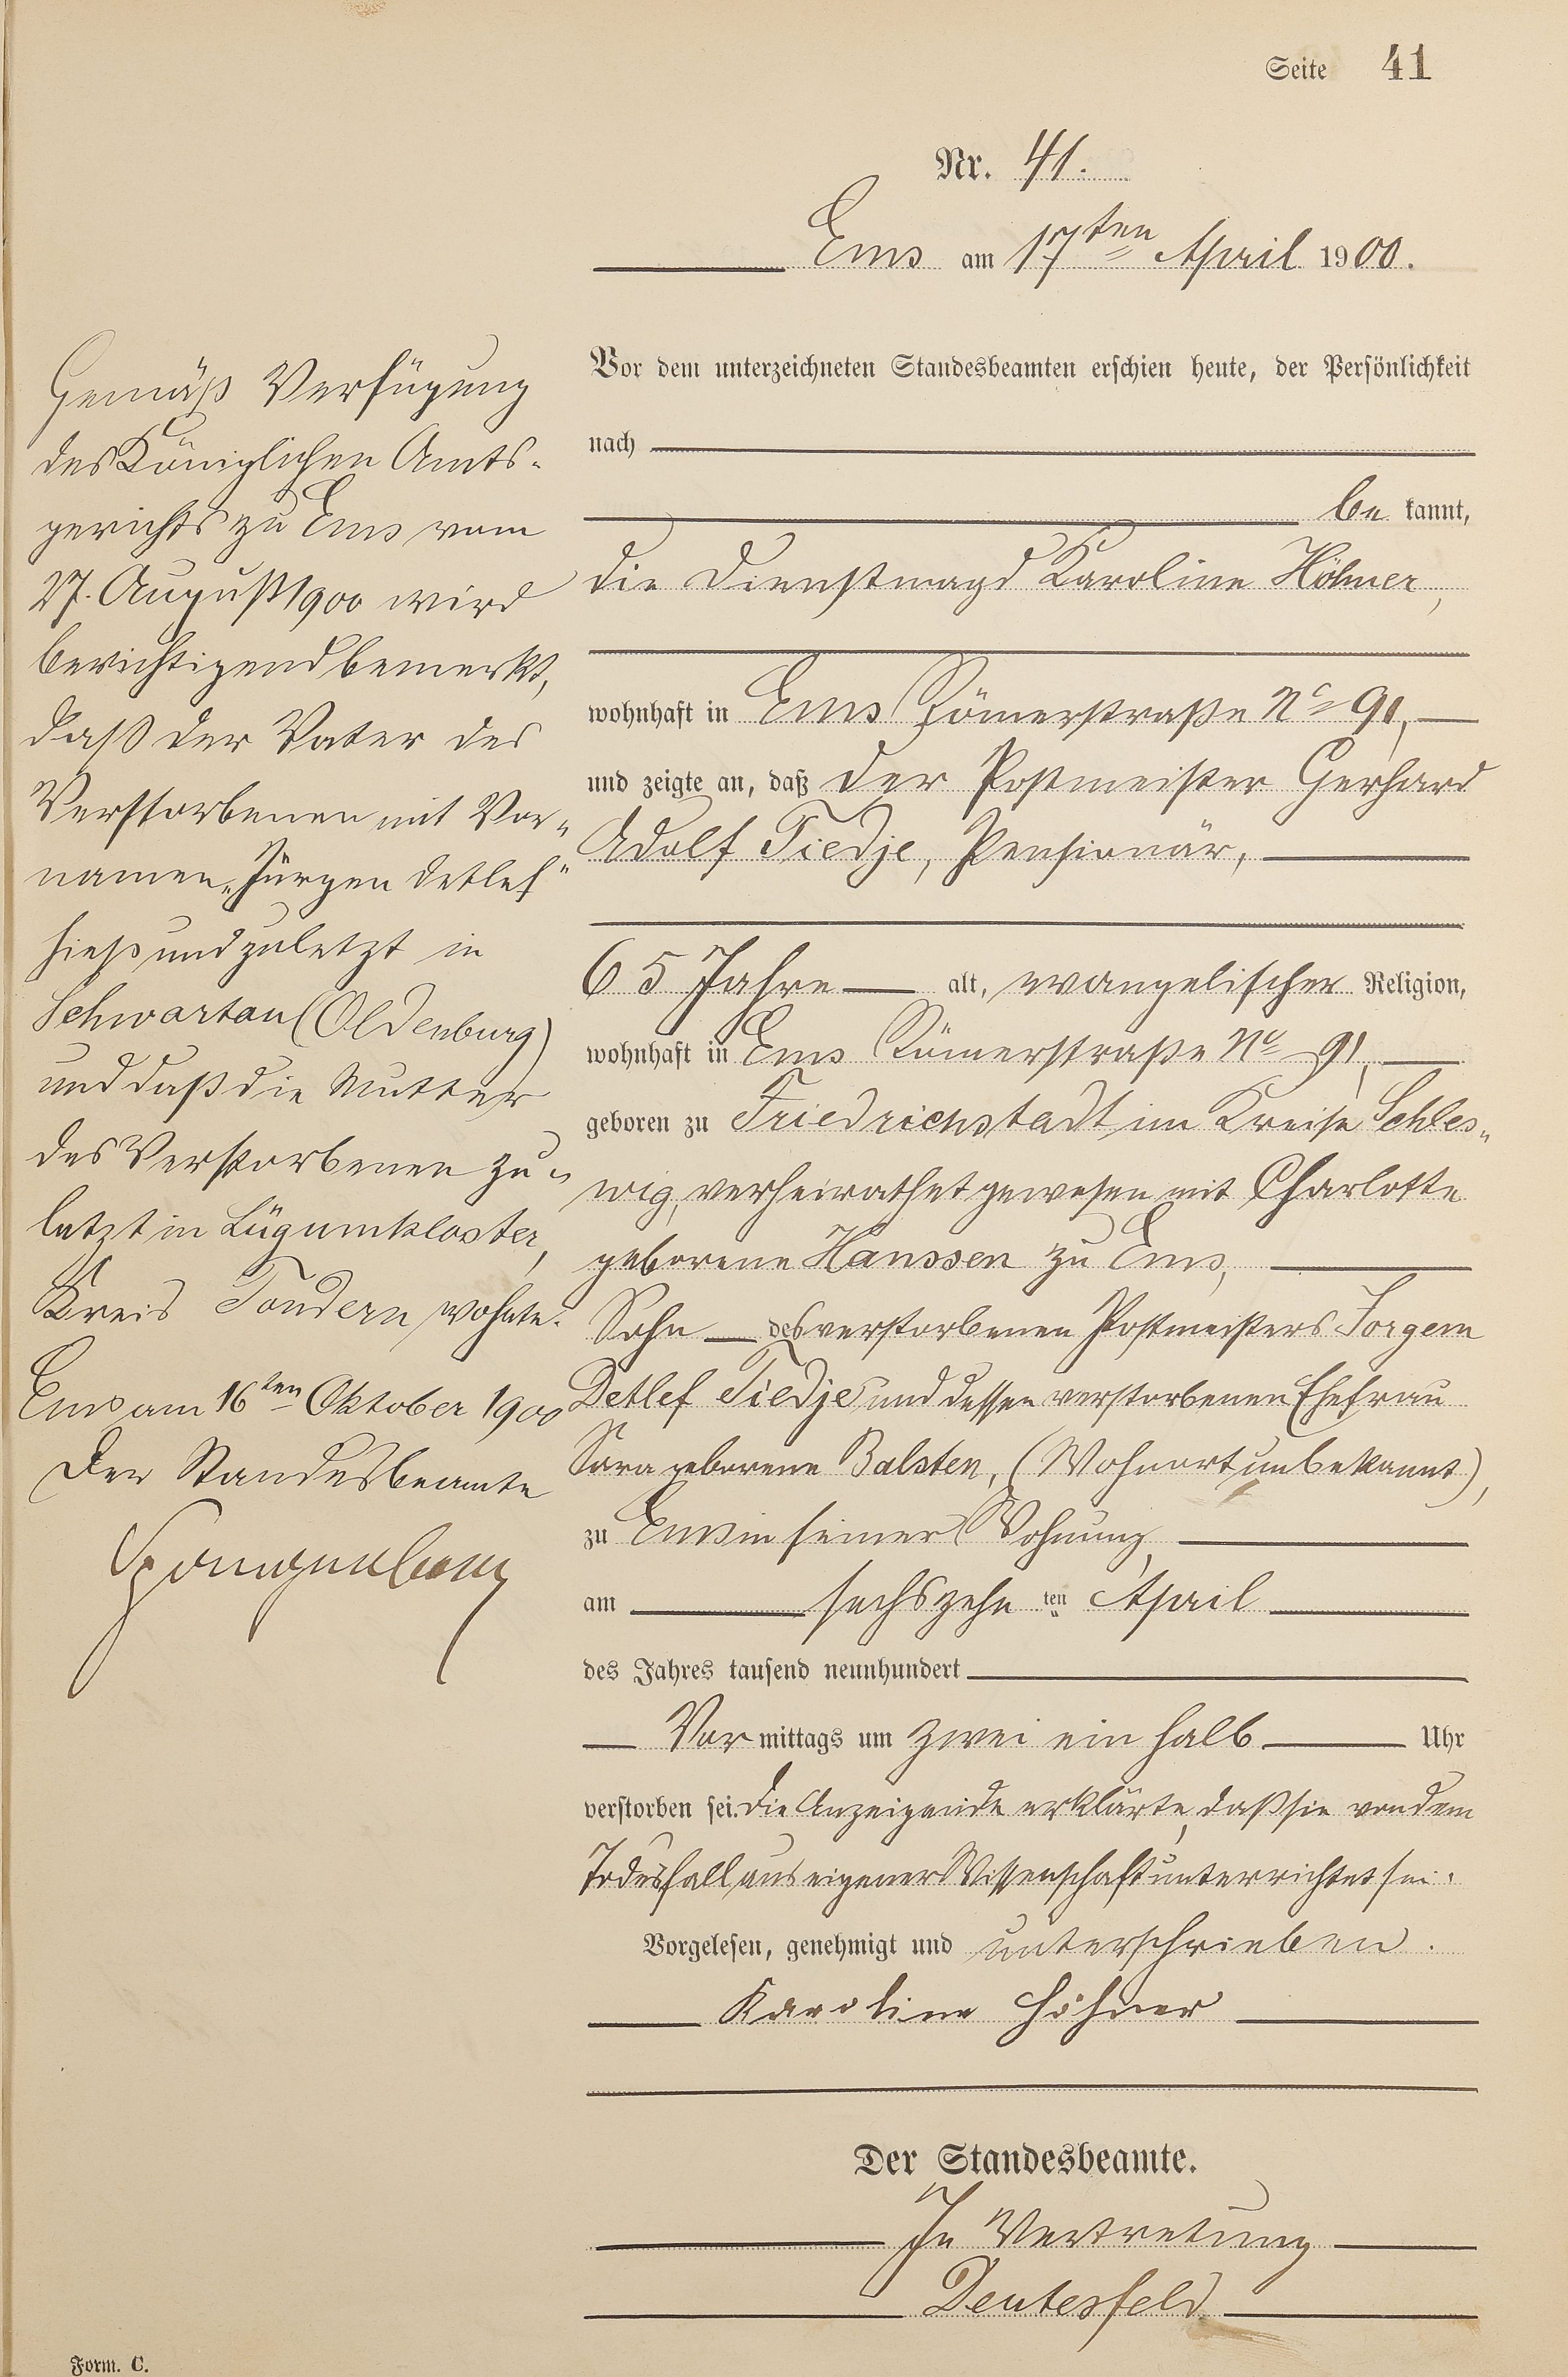 Seite 41
Nr. 41.
Ems am 17ten April 1900.
Vor dem unterzeichneten Standesbeamten erschien heute, der Persönlichkeit
nach
be kannt,
die Dienstmagd Karoline Höhner,
wohnhaft in Ems Römerstraße No 91,
und zeigte an, daß der Postmeister Gerhard
Adolf Tiedje, Pensionär,
65 Jahre alt, evangelischer Religion,
wohnhaft in Ems Römerstraße No 91,
geboren zu Friedrichstadt im Kreise Schles„
wig, verheirathet gewesen mit Charlotte
geborene Hanssen zu Ems,
Sohn des verstorbenen Postmeisters Jorgem
Detlef Tiedje und dessen verstorbenen Ehefrau
Sara geborene Balsten, (Wohnort unbekannt),
zu Ems in seiner Wohnung,
am sechszehn ten April
des Jahres tausend neunhundert
Vor mittags um zwei ein halb Uhr
verstorben sei. Die Anzeigende erklärte, daß sie von dem
Todesfall aus eigener Wissenschaft unterrichtet sei.
Vorgelesen, genehmigt und unterschrieben.
Karoline Höhner
Der Standesbeamte.
In Vertretung
Deutesfeld
Gemäß Verfügung
des Königlichen Amts-
gerichts zu Ems vom
27. August 1900 wird
berichtigend bemerkt,
daß der Vater des
Verstorbenen mit Vor„
namen „Jürgen Detlef"
hieß und zuletzt in
Schwartau (Oldenburg)
und daß die Mutter
des Verstorbenen zu„
letzt in Lügumkloster,
Kreis Tondern wohnte.
Ems am 16ten Oktober 1900
Der Standesbeamte
Form. C.